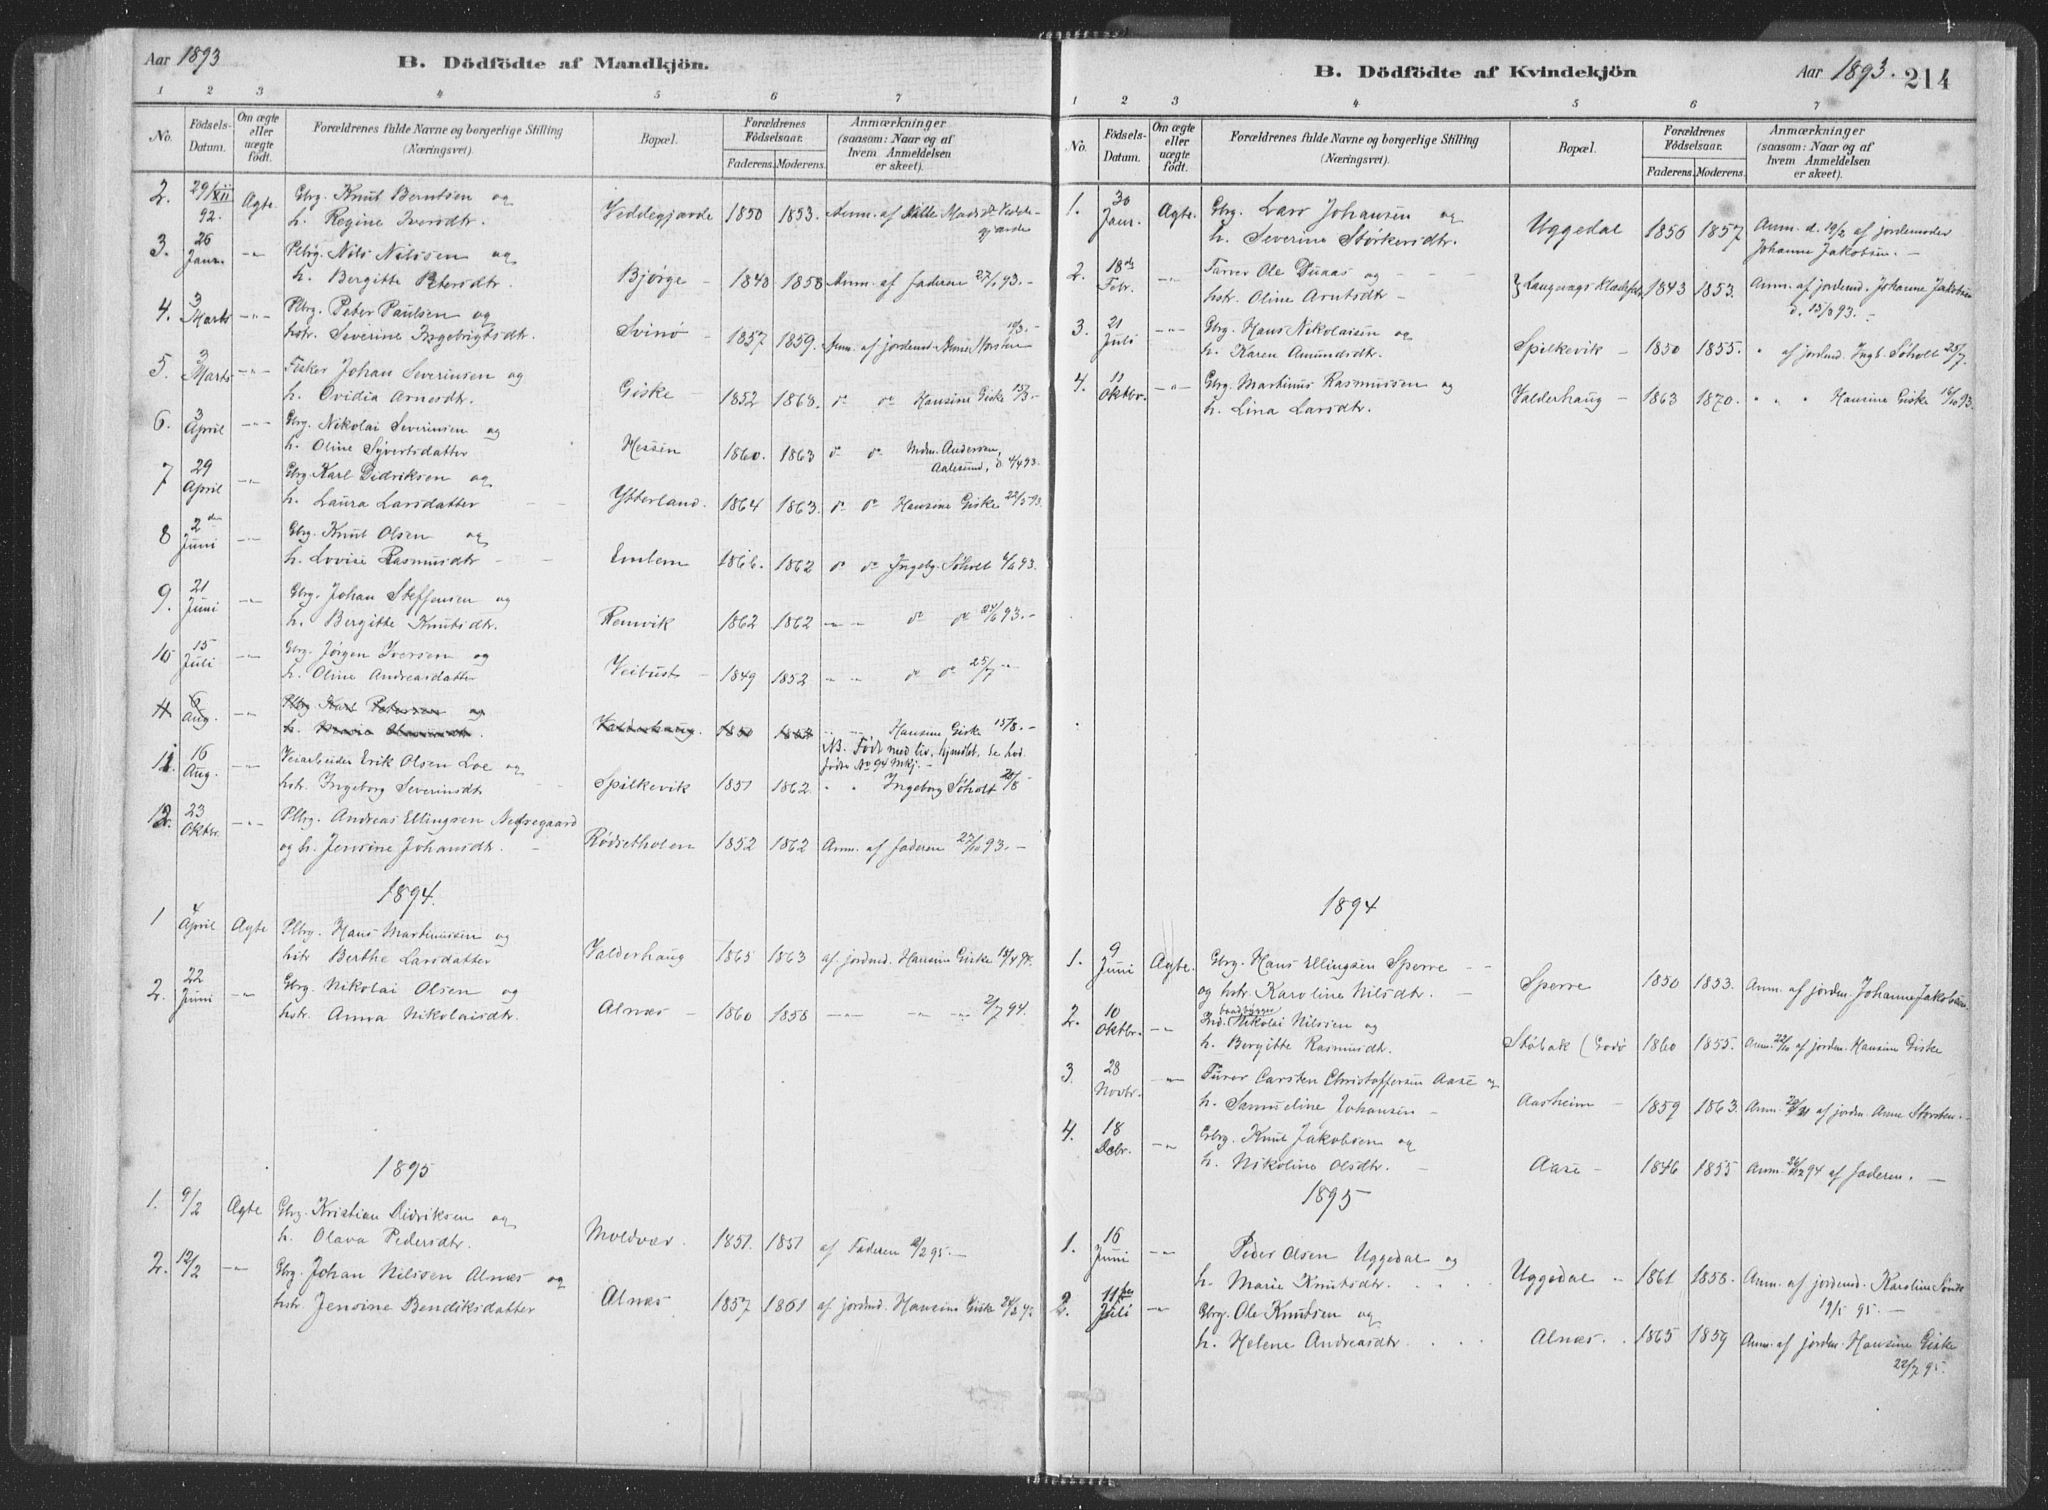 Aar 1893
B. Dödfödte af Mandkjön.
1 2 3 4 5 6 7
No. Födsels-Datum. Om ægte eller uægte födt. Forældrenes fulde Navne og borgerlige Stilling (Næringsvei). Bopæl. Forældrenes Födselsaar. Faderens. Moderens. Anmærkninger (saasom: Naar og af hvem Anmeldelsen er skeet).
2. 29/XII 92. Ægte Gbrg. Knut Berntsen og
h. Regine Iversdtr. Veddegjærde 1850 1853. Anm. af Nille Madsdr Vedde-
gjærde
3. 26 Janr. -"- Plbrg. Nils Nilssen og
h. Bergitte Petersdtr. Bjørge - 1848 1858 Anm. af Faderen 27/1 93. -
4. 3 Marts -"- Plbrg. Peter Paulsen og
hstr. Severine Ingebrigtsdtr. Svinø - 1857 1859. Anm. af jordmd. Anne
5. 3 Marts -"- Fisker Johan Severinsen og
h. Ovidia Arnesdtr. Giske - 1852 1868. do do Hansine Giske 15/3. -
6. 3 April -"- Gbrg. Nikolai Severinsen og
h. Oline Syvertsdatter Hessen 1860. 1863 do do Mdm. Andersen,
Aalesund, d. 4/4 93.
7 29 April -"- Gbrg. Karl Didriksen og
h. Laura Larsdatter - - Ytterland. 1864 1863. do do Hansine Giske 22/5 93.
8 2den Juni -"- Gbrg. Knut Olsen og
h. Lovise Rasmusdtr - - Emblem 1866. 1862 do do Ingebg. Søholt 93.
9. 21 Juni -"- Gbrg. Johan Steffensen og
h. Bergitte Knutsdtr. Remvik 1862 1862 -"- do do 24/6 93. -
10 15 Juli -"- Gbrg. Jørgen Iversen og
h. Oline Andreasdatter Veibust - 1849 1852 " " do do 25/7 -"-
11 6 Aug. -"- Plbrg Karl Petersen og
h. Valderhaug. 1850 Hansine Giske 15/8. -
NB. Født med liv, hjmdbt. Se lev.
fødte No 94 Mkj. -
11. 16 Aug. -"- Veiarbeider Erik Olsen Loe og
hstr. Ingeborg Severinsdtr Spilkevik 1851 1862. " " Ingeborg Søholt 20/8 -
12. 23 Oktbr. -"- Plbrg. Andreas Ellingsen Nedregaard
og h. Jensine Johansdtr. - Rødsetholen 1852 1862 Anm. af Faderen 27/10 93. -
1894.
1 4 April Ægte Plbrg. Hans Martinussen og
hstr Berthe Larsdatter Valderhaug 1865 1863 af jordmd. Hansine Giske 18/4 94.
2. 22 Juni -"- Gbrg. Nikolai Olsen og
hstr. Anna Nikolaisdtr. Alnæs - 1860 1858 -"- -"- -"- 2/7 94.
1895
1. 9/2 Ægte Gbrg. Kristian Didriksen og
h. Olava Pedersdtr. Moldvær. 1851. 1851 af Faderen 2 95. -
2. 12/2 -"- Gbrg. Johan Nilssen Alnæs og
hstr. Jensine Bendiksdatter Alnæs. 1857 1861 af jordmd. Hansine Giske
B. Dödfödte af Kvindekjön
Aar 1893. 214
1 2 3 4 5 6 7
No. Födsels-Datum. Om ægte eller uægte födt. Forældrenes fulde Navne og borgerlige Stilling (Næringsvei). Bopæl. Forældrenes Födselsaar. Faderens. Moderens. Anmærkninger (saasom: Naar og af hvem Anmeldelsen er skeet).
1. 30 Janr. Ægte Gbrg. Lars Johansen og
h. Severine Størkersdtr. Uggedal 1856 1857 Anm. d. 10/2 af jordemoder
Johanne Jakobsen. -
2. 18de Febr. -"- Farver Ole Duaas og - - -
hstr. Oline Arntsdtr - Langevags Klædefabr. 1843 1853. Anm. af jordmd. Johanne Jakobsen
d. 15/3 93. -
3. 21 Juli -"- Gbrg. Hans Nikolaisen og
h. Karen Amundsdtr. Spilkevik - 1850 1855. " af jordmd. Ingb. Søholt 25/7.
4. 11 Oktbr. -"- Gbrg. Martinus Rasmussen og
h. Lina Larsdtr. Valderhaug - 1863 1870. " " " Hansine Giske 16/10 93.
1894
1. 9 Juni Ægte. Gbrg. Hans Ellingsen Sperre - -
og hstr. Karoline Nilsdtr. - Sperre 1850 1853. Anm. af jordem. Johanne Jakobsen
2. 10 Oktbr. -"- Ind. baadbygger Nikolai Nilssen og
h. Bergitte Rasmusdtr. Støbak (Godø 1860 1855. Anm. 22/10 af jordem. Hansine Giske
3. 28 Novbr. -"- Furer Carsten Christoffersen Aase og
h. Samueline Johansen - Aasheim - 1859 1863. Anm. af jordm. Anne
4. 18 Debr. -"- Gbrg. Knut Jakobsen og
h. Nikoline Olsdtr. - Aase - 1846 1855 Anm. 26/12 94 af Faderen. -
1895
1. 16 Juni -"- Peder Olsen Uggedal og
h. Marie Knutsdtr. Uggedal " 1861 1858. Anm. af jordemd. Karoline
95. -
2. 11te Juli -"- Gbrg. Ole Knutsen og
h. Helene Andreasdtr. Alnæs. 1865 1859 Anm. af jordm. Hansine Giske
22/7 95.